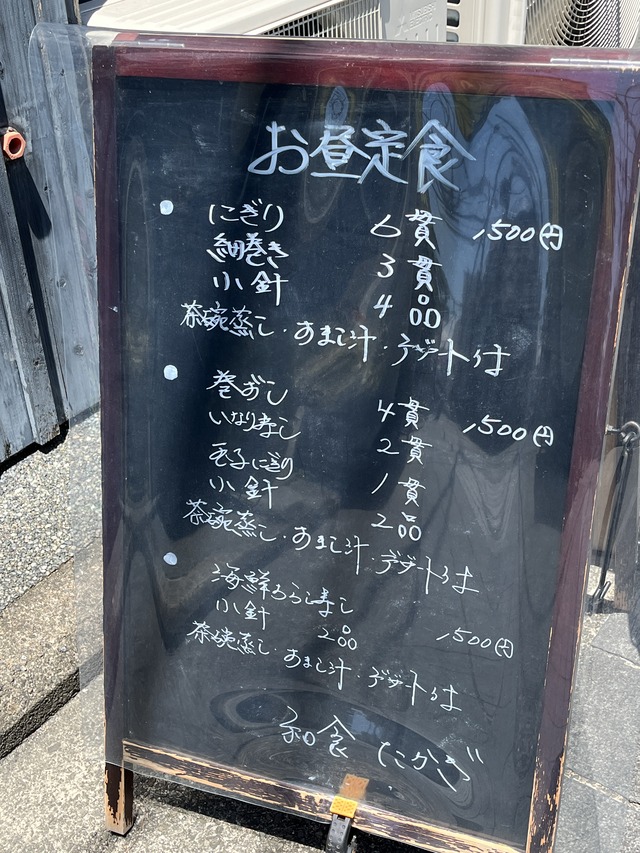 お昼定食
• にぎり 6貫 1,500円
細巻き 3貫
小針 4品
茶碗蒸し・あまし汁・デザートつき
• 巻ずし 4貫 1,500円
いなり寿し 2貫
玉子にぎり 1貫
小針 2品
茶碗蒸し・あまし汁・デザートつき
• 海鮮ちらし寿し
小針 2品 1,500円
茶碗蒸し・あまし汁・デザートつき
和食